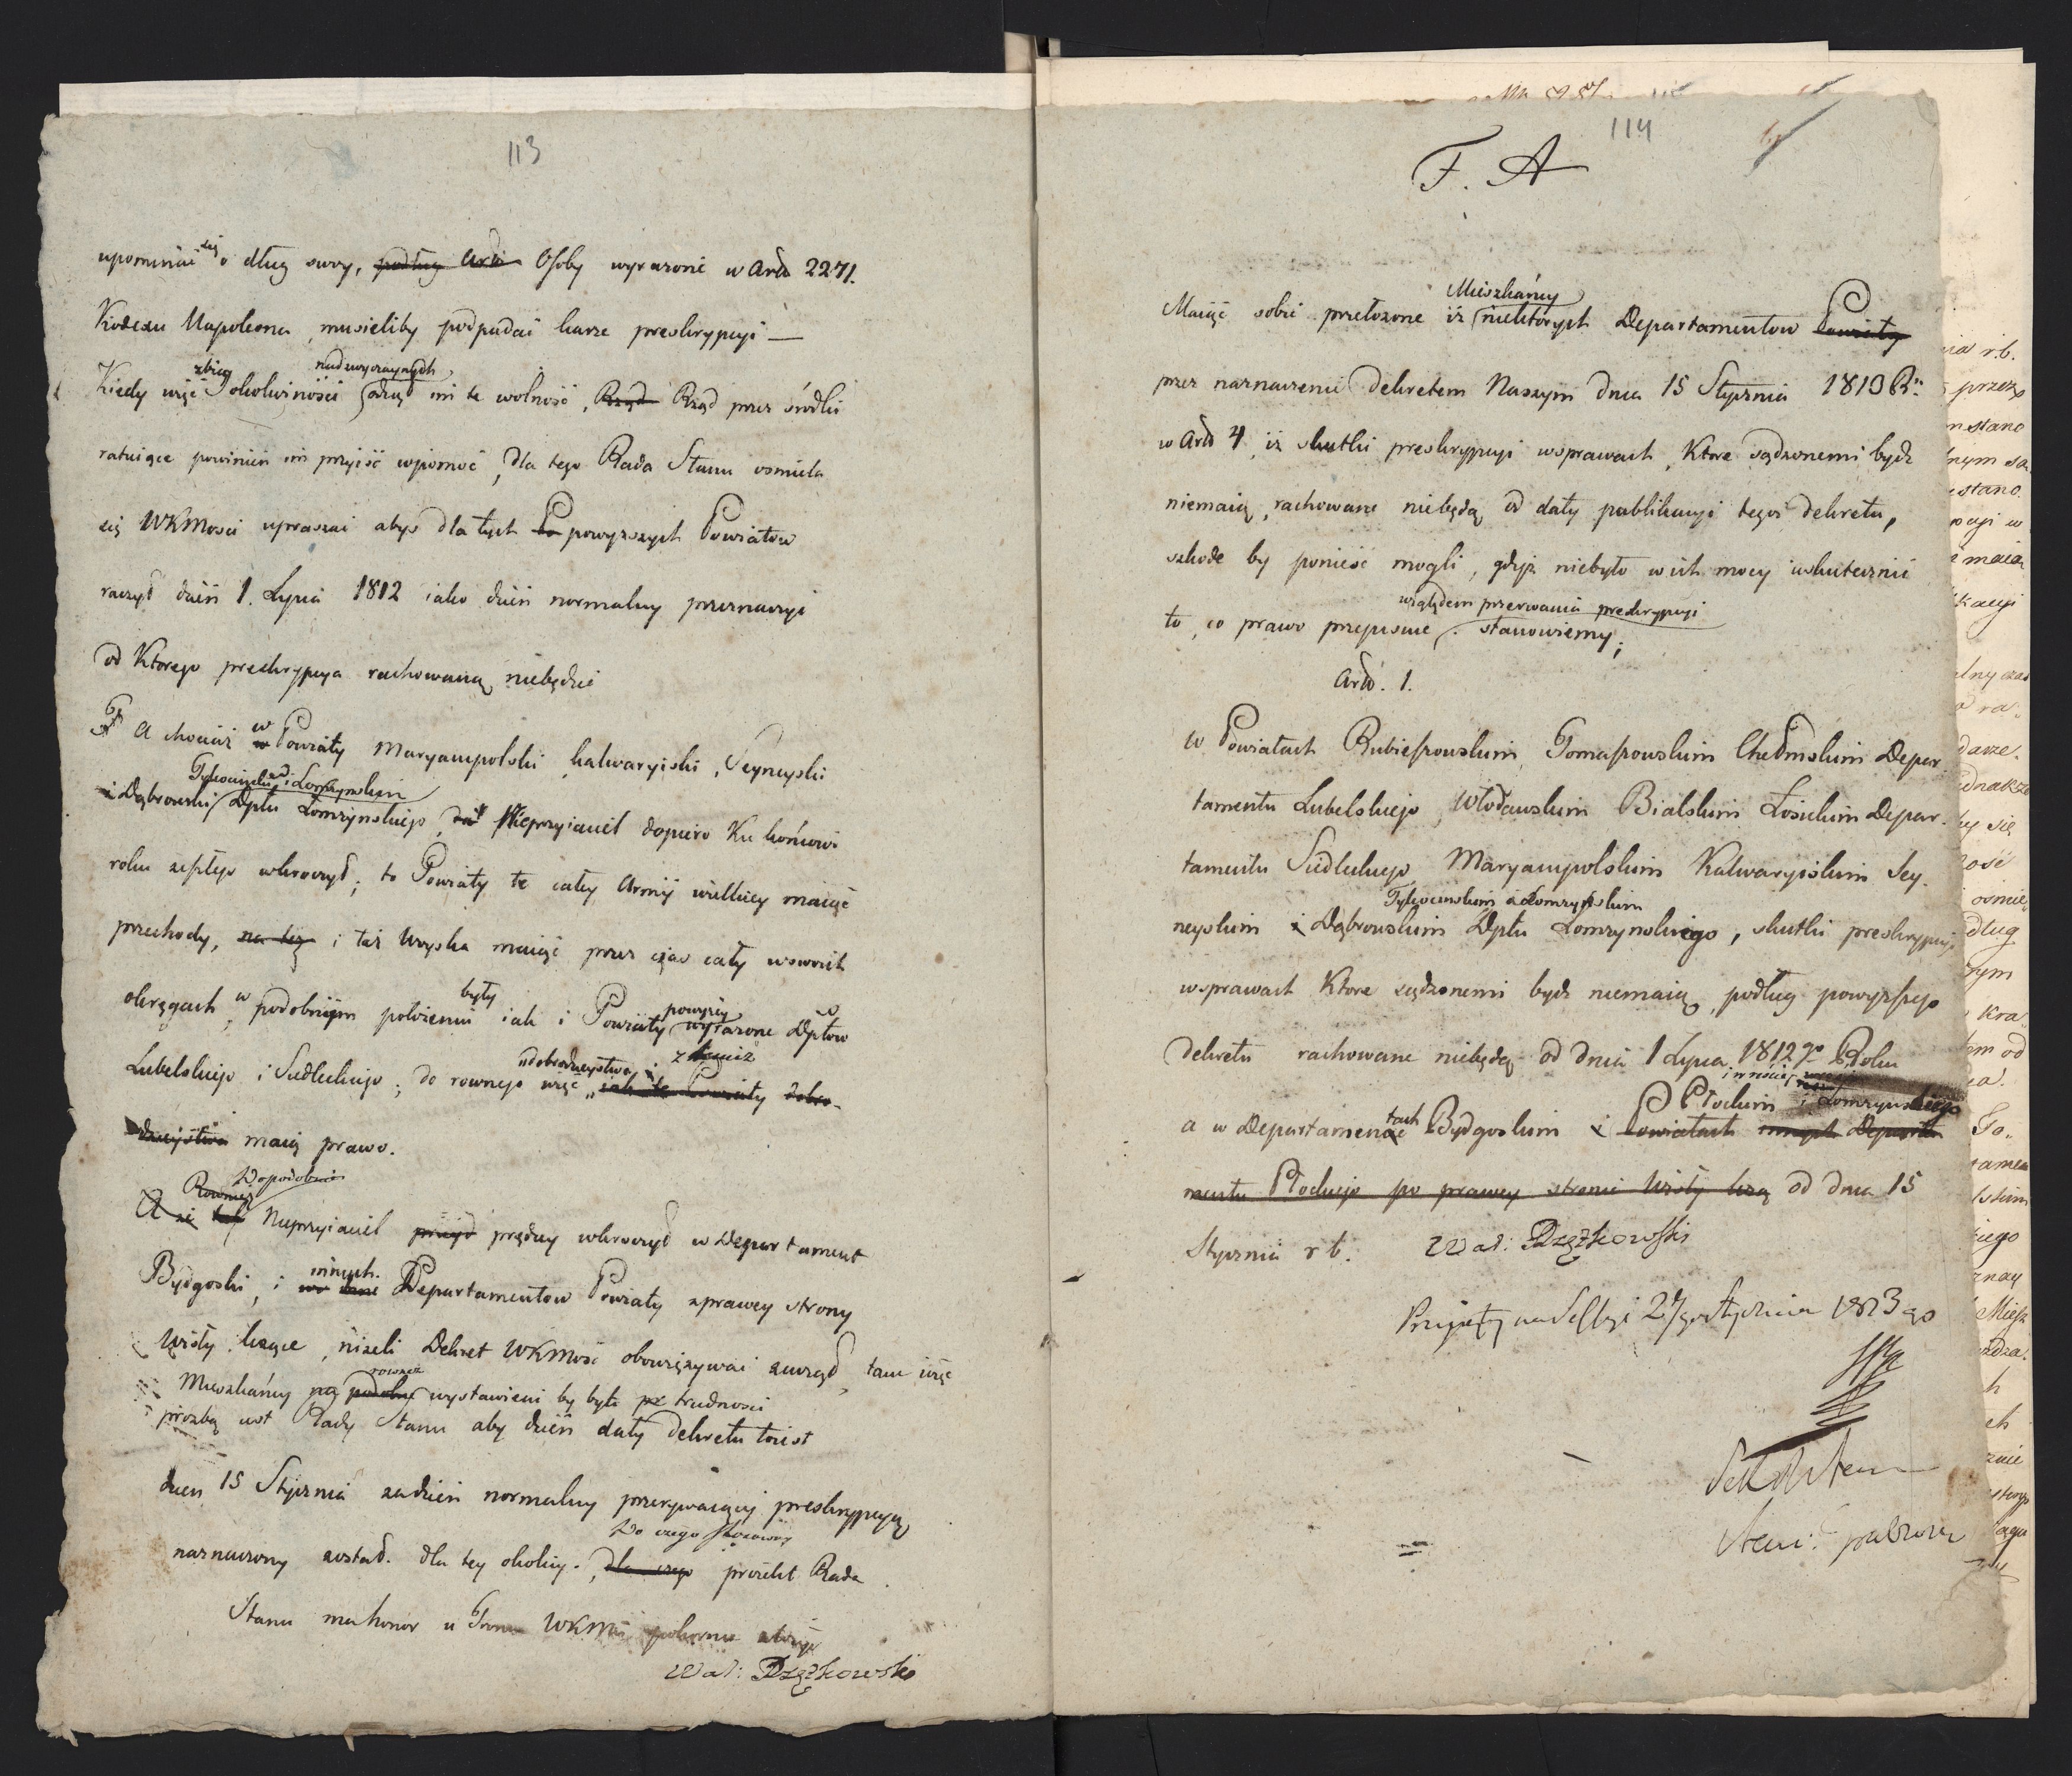 113
upominać się o dług swoy, podług Art. Osoby wyrazone w Art 2271.
Kodexu Napoleona, musieliby podpadać karze preskrypcyi —
Kiedy więc zbieg okoliczności nadzwyczaynych odiął im te wolność, Rząd Rząd przez środki
ratuiące powinien im przyiść w pomoc, dla tego Rada Stanu osmiela
się WKMości upraszać abyś dla tych Po powyzszych Powiatow
raczył dzień 1. Lipca 1812 iako dzień normalny przeznaczyć
od Ktorego preskrypcya rachowaną niebędzie
A chociaż w Powiaty Maryampolski, kalwaryiski, Seyneyski
Tykocinski i Łomżynskim
i Dąbrowski Dptu Łomżynskiego, Nieprzyiaciel dopiero Ku końcowi
roku zeszłego wkroczył; to Powiaty te całey Armij wielkiey maiąc
przechody, na tez i też Woyska maiąc przez czas cały w swoich
okręgach, w podobnym położeniu były iak i Powiaty powyżey wyrazone Dptow
Lubelskiego i Siedleckiego; do rownego więc dobrodzieystwa z temiz iak te Powiaty dobro-
dzieystwa maią prawo.
Rownież Do podobnie
A ze tak Nieprzyiaciel prędzey wkroczył w Departament
Bydgoski, i innych Departamentow Powiaty z prawey strony
Wisły leżące, niżeli Dekret WKMość obowiązywać zaczął, tam więc
Mieszkańcy na podobne rownież wystawieni by byli trudności
prozbą iest Rady Stanu aby dzień daty Dekretu toiest
dzien 15 Stycznia za dzień normalny przerywaiący preskrypcyą
Do czego stosowny
naznaczony został. dla tey okolicy. dla czego proiekt Rada
Stanu ma honor u Tronu WKMci pokornie złożyć
Wal: Rzążkowski
114
F. A
Maiąc sobie przełożone iż Mieszkańcy niektorych Departamentow Powiaty
przez naznaczenie Dekretem Naszym dnia 15 Stycznia 1813 R.
w Art 4, iż skutki preskrypcyi w sprawach, Ktore sądzonemi bydź
niemaią, rachowane niebędą od daty publikacyi tegoż dekretu,
szkode by ponieść mogli, gdyż niebyło w ich mocy uskutecznić
to, co prawo przepisuie względem przerwania preskrypcyi. stanowiemy;
Art. 1.
W Powiatach Rubieszowskim, Tomaszowskim Chełmskim Depar
tamentu Lubelskiego, Włodawskim Bialskim Łosickim Depar-
tamentu Siedleckiego, Maryampolskim Kalwaryiskim Sey-
neyskim i Dąbrowskim Tykocinskim i Łomżynskim Dptu Łomżynskiego, skutki preskrypcyi
w sprawach Ktore sądzonemi bydź niemaią, podług powyższego
Dekretu rachowane niebędą od dnia 1 Lipca 1812go Roku
a w Departamentach Bydgoskim i Płockim i Łomżynskiego Powiatach innych Departa
mentu Płockiego po prawey stronie Wisły leżą od dnia 15
Stycznia r b. Wal: Rzążkowski
Przyięty na Sessyi 27go Stycznia 1813 go